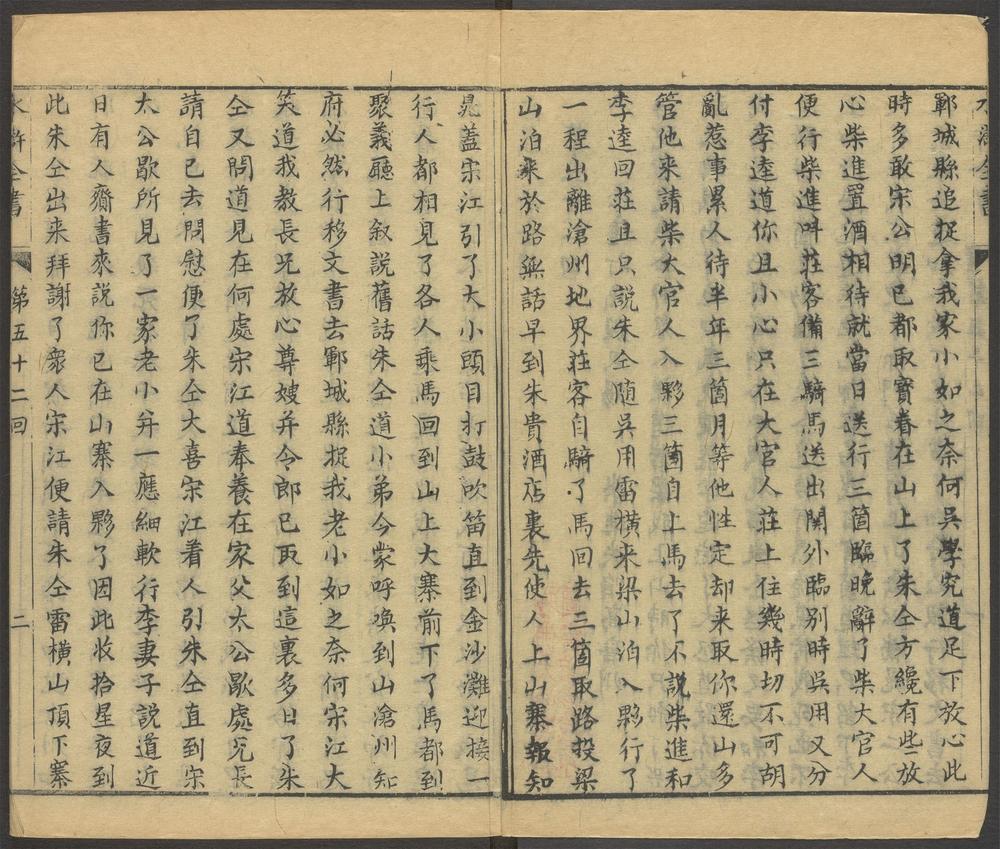 鄆城縣追捉拿我家小如之奈何吳學究道足下放心此
時多敢宋公明已都取寳眷在山上了朱仝方纔有些放
心柴進置酒相待就當日送行三箇臨晚辭了柴大官人
便行柴進呌莊客備三騎馬送出關外臨别時吳用又分
付李逵道你且小心只在大官人莊上住幾時切不可胡
亂惹事累人待半年三箇月等他性定却来取你還山多
管他来請柴大官人入夥三箇自上馬去了不說柴進和
李逵回莊且只說朱仝随吳用雷横来梁山泊入夥行了
一程出離滄州地界莊客自騎了馬回去三箇取路投梁
山泊来於路無話早到朱貴酒店裏先使人上山寨報知
晁蓋宋江引了大小頭目打鼓吹笛直到金沙灘迎接一
行人都相見了各人乘馬回到山上大寨前下了馬都到
聚義廳上叙說舊話朱仝道小弟今蒙呼喚到山滄州知
府必然行移文書去鄆城縣捉我老小如之奈何宋江大
笑道我教長兄放心尊嫂并令郎已取到這裏多日了朱
仝又問道見在何處宋江道奉養在家父太公歇處兄長
請自己去問慰便了朱仝大喜宋江着人引朱仝直到宋
太公歇所見了一家老小并一應細軟行李妻子說道近
日有人齎書來說你已在山寨入夥了因此收拾星夜到
此朱仝出来拜謝了衆人宋江便請朱仝雷横山頂下寨
水滸全書
第五十二回
二